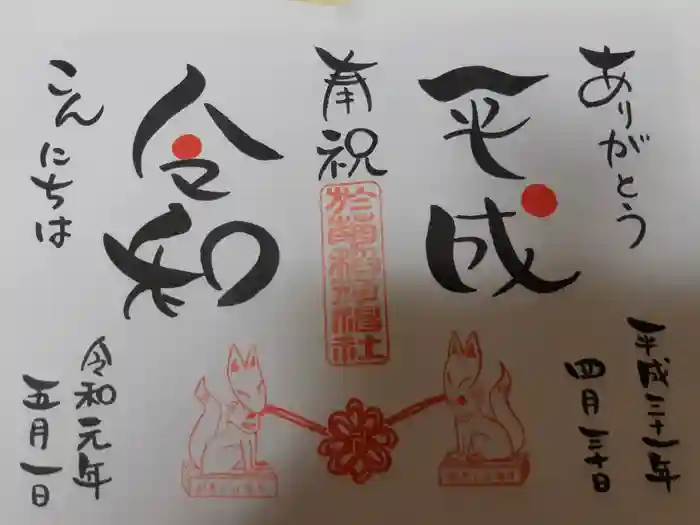 ありがとう
平成
平成三十一年
四月三十日
奉祝
稲荷神社
令和
こんにちは
令和元年
五月一日